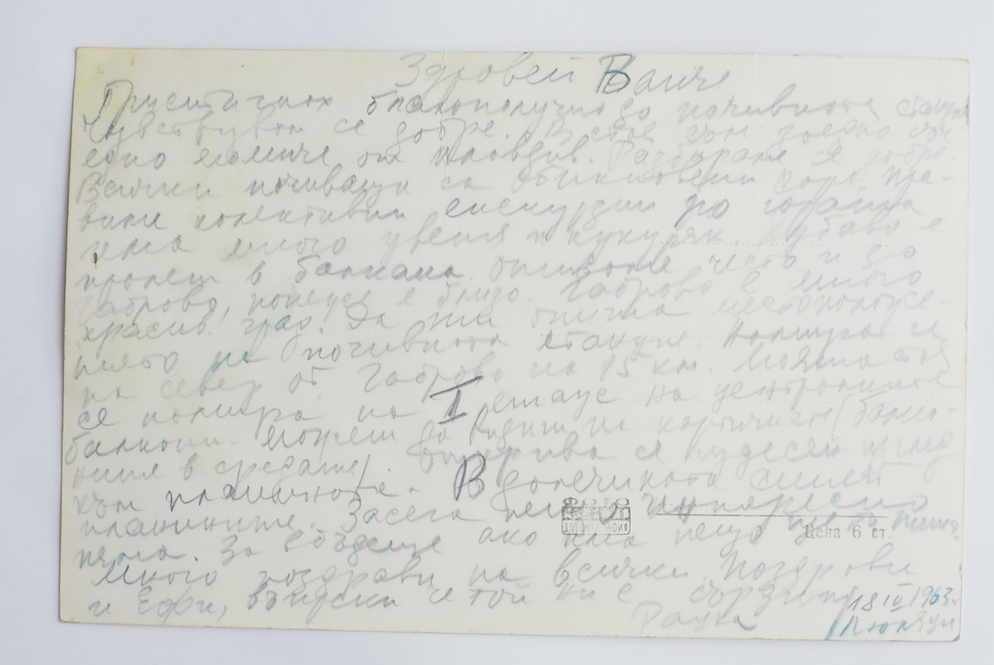 Здровей Ванче
Пристигнах благополучно до почивната станция
Чувствувам се добре. В стая съм заедно със
едно момиче от Пловдив. Разбираме се добре.
Всички почиващи са обикновени хора. Пра-
виме колективни екскурзии до гората
има много цветя и кукуряк. Хубаво е
пролет в балкана. Отиваме често и до
Габрово, понеже е близо. Габрово е много
красив град. Да ти опиша местоположе-
нието на почивната станция. Намира се
на север от Габрово на 15 км. Моята стая
се намира на I етаж на централните
балкони. Можеш да видиш на картичката (балко-
ния в средата). Открива се чудесен изглед
към планините. В далечината синеят
планините. Засега нещо интересно
няма. За в бъдеще ако има нещо
Много поздрави на всички. Поздрави
и Ефи, въпреки че той ми е
Радка
18 IV 1963 г.
Цена 6 ст.